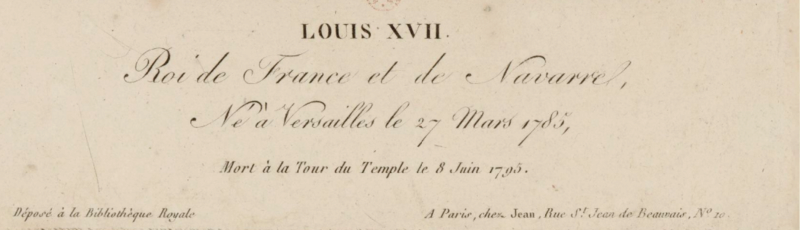 LOUIS XVII.
Roi de France et de Navarre,
Né à Versailles le 27 Mars 1785,
Mort à la Tour du Temple le 8 Juin 1795.
Déposé à la Bibliothèque Royale
A Paris, chez Jean, Rue St. Jean de Beauvais, No 10.